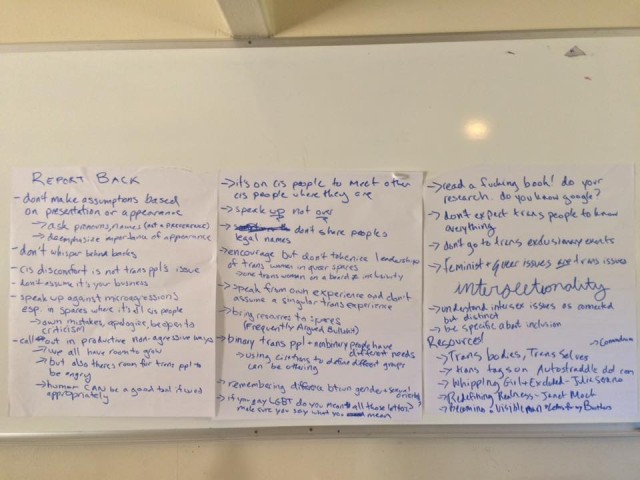 REPORT BACK
- don't make assumptions based
on presentation or appearance
→ ask pronouns, names (not a preference)
→ deemphasize importance of appearance
- don't whisper behind backs
- cis discomfort is not trans ppl's issue
- don't assume it's your business
- speak up against microaggressions
esp. in spaces where it's all cis people
→ own mistakes, apologize, be open to
criticism
- call out in productive non-aggressive ways
→ we all have room to grow
→ but also theres room for trans ppl to
be angry
→ humor CAN be a good tool if used
appropriately
→ it's on cis people to meet other
cis people where they are
→ speak up not over
→ don't share people's
legal names
→ encourage but don't tokenize leadership
of trans women in queer spaces
some trans women on a board ≠ inclusivity
→ speak from own experience and don't
assume a singular trans experience
→ bring resources to spaces
(Frequently Argued Bullshit)
→ binary trans ppl + nonbinary people have
different needs
→ using cis terms to define different groups
can be othering
→ remembering difference btwn gender + sexual
→ if you say LGBT do you mean all those letters?
make sure you say what you mean
→ read a fucking book! do your
research. do you know google?
→ don't expect trans people to know
everything
→ don't go to trans exclusionary events
→ feminist + queer issues are trans issues
intersectionality
→ understand intersex issues as connected
but distinct
→ be specific about inclusion
Resources!
→ Trans bodies, Trans Selves
→ trans tags on Autostraddle dot com
→ Whipping Girl + Excluded - Julia Serano
→ Redefining Realness - Janet Mock
→ Becoming a Visible man